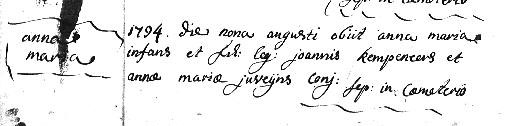 Sep: in Cemeterio
anna
maria
1794. die nona augusti obiit anna maria
infans et fil: leg: joannis kempeneers et
annæ mariæ juveijns Conj: Sep: in Cœmeterio